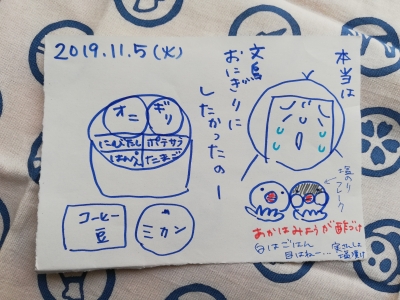 2019.11.5(火)
本当は
文鳥
おにぎりに
したかったのー
オニ
ギリ
にんじん
ポテサラ
はんぺん
たまご
コーヒー
豆
ミカン
塩のり
あかはみょうが酢づけ
白はごはん
目はねー…
塩漬け